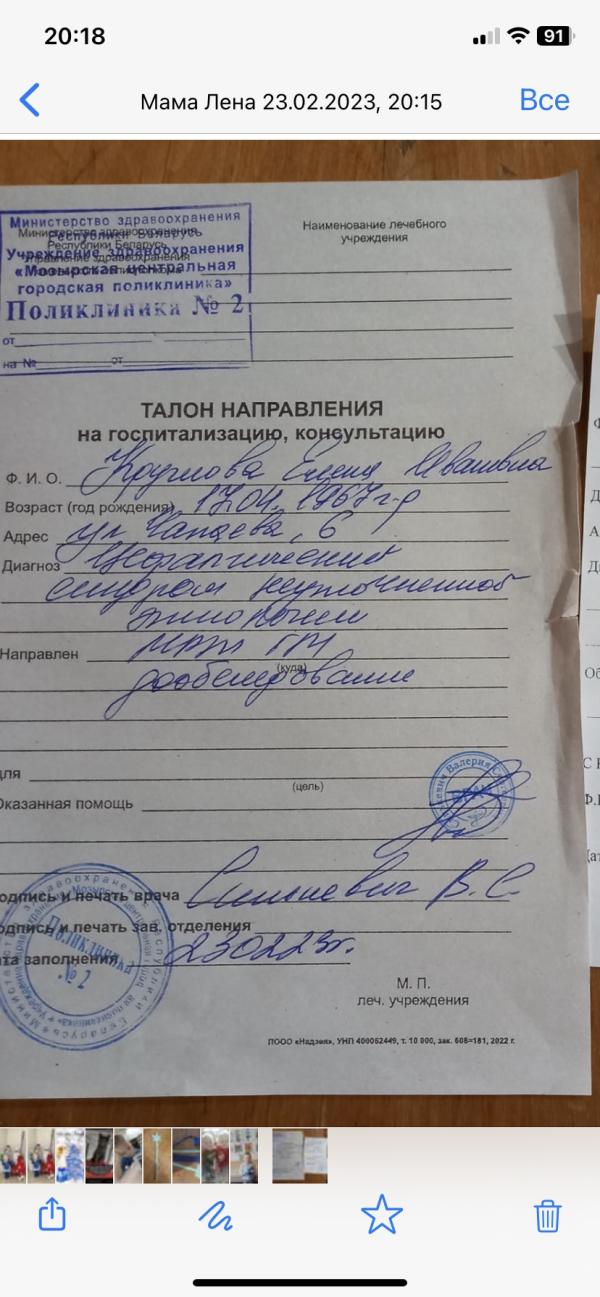 20:18
91
Мама Лена 23.02.2023, 20:15
Все
Министерство здравоохранения
Республики Беларусь
Учреждение здравоохранения
«Мозырская центральная
городская поликлиника»
Поликлиника № 2
от
на № от
Министерство здравоохранения
Республики Беларусь
Управление здравоохранения
Наименование лечебного
учреждения
ТАЛОН НАПРАВЛЕНИЯ
на госпитализацию, консультацию
Ф. И. О. Круглова Елена Ивановна
Возраст (год рождения) 17.04.1967 г.р
Адрес ул Чапаева, 6
Диагноз Цефалгический
синдром неуточненной
этиологии
Направлен МРТ ГМ
(куда)
дообследование
для
(цель)
Оказанная помощь
Валерия
ВРАЧ
одпись и печать врача В.С.
одпись и печать зав. отделения
та заполнения 230223г.
Поликлиника
№ 2
М. П.
леч. учреждения
ПООО «Надзея», УНП 400052449, т. 10 000, зак. 608=181, 2022 г.